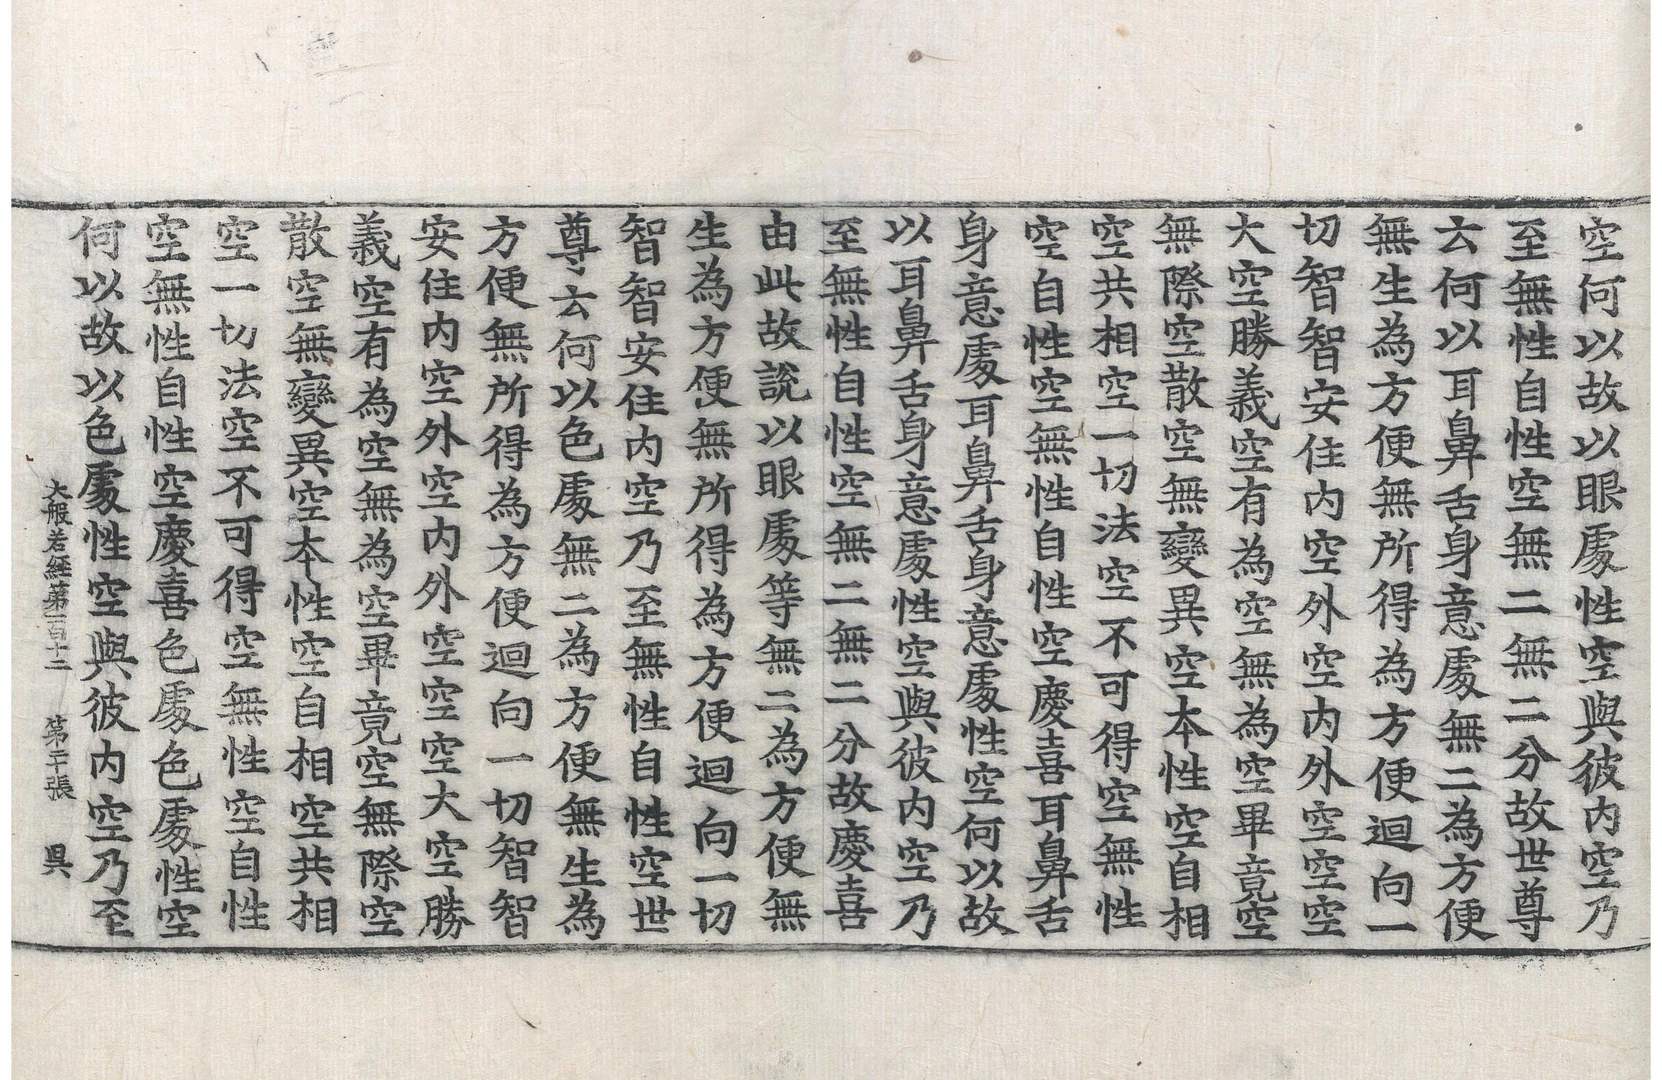 空何以故以眼處性空與彼内空乃
至無性自性空無二無二分故世尊
云何以耳鼻舌身意處無二為方便
無生為方便無所得為方便迴向一
切智智安住内空外空内外空空空
大空勝義空有為空無為空畢竟空
無際空散空無變異空本性空自相
空共相空一切法空不可得空無性
空自性空無性自性空慶喜耳鼻舌
身意處耳鼻舌身意處性空何以故
以耳鼻舌身意處性空與彼内空乃
至無性自性空無二無二分故慶喜
由此故說以眼處等無二為方便無
生為方便無所得為方便迴向一切
智智安住内空乃至無性自性空世
尊云何以色處無二為方便無生為
方便無所得為方便迴向一切智智
安住内空外空内外空空空大空勝
義空有為空無為空畢竟空無際空
散空無變異空本性空自相空共相
空一切法空不可得空無性空自性
空無性自性空慶喜色處色處性空
何以故以色處性空與彼内空乃至
大般若經第一百十二 第二十張 㫷